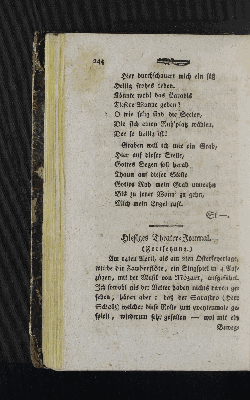 244
Hier durchschauert mich ein süß
Heilig frohes Leben.
Könnte wohl das Paradis
Tiefre Wonne geben?
O wie selig sind die Seelen,
Die sich einen Ruh'platz wählen,
Der so heilig ist!
Graben will ich mir ein Grab,
Hier auf dieser Stelle,
Gottes Segen soll herab
Thaun auf diese Stelle
Gottes Ruh mein Grab umwehn
Bis zu jener Wonn' zu gehn,
Mich mein Engel ruft.
St—.
Hiesiges Theater-Journal.
(Fortsetzung.)
Am 19ten April, als am 2ten Osterfeyertage,
wurde die Zauberflöte, ein Singspiel in 4 Auf-
zügen, mit der Musik von Mozart, aufgeführt.
Ich sowohl als der Kleine haben nichts davon ge-
sehen, hören aber: daß der Sarastro (Herr
Scholz) welcher diese Rolle zum zweytenmale ge-
spielt, wiederum sehr gefallen — wol mir ein
Bewegs